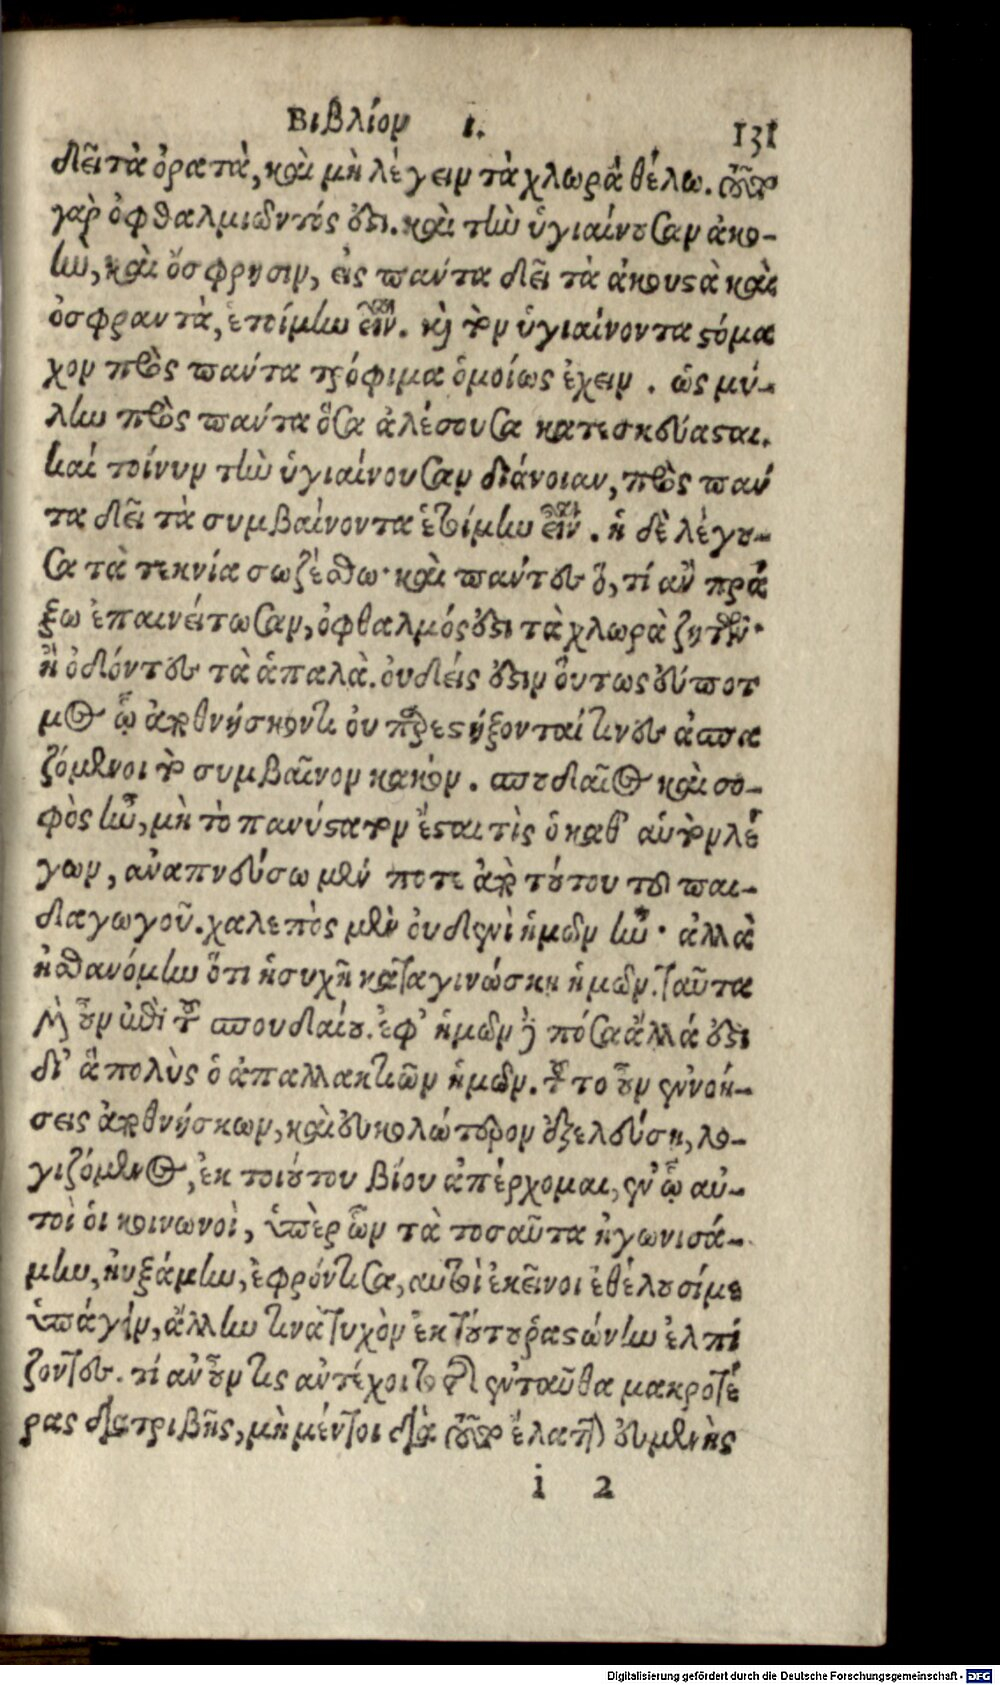 Βιβλίον ι. 131
δεῖ τὰ ὁρατὰ, καὶ μὴ λέγειν τὰ χλωρὰ θέλω. τοῦτο
γὰρ ὀφθαλμιῶντός ἐστι. καὶ τὴν ὑγιαίνουσαν ἀκο-
ὴν, καὶ ὄσφρησιν, εἰς πάντα δεῖ τὰ ἀκουστὰ καὶ
ὀσφραντὰ, ἑτοίμην εἶναι. καὶ τὸν ὑγιαίνοντα στόμα
χον πρὸς πάντα τρόφιμα ὁμοίως ἔχειν. ὡς μύ-
λην πρὸς πάντα ὅσα ἀλέσουσα κατεσκεύασται.
καί τοίνυν τὴν ὑγιαίνουσαν διάνοιαν, πρὸς πάν
τα δεῖ τὰ συμβαίνοντα ἑτοίμην εἶναι. ἡ δὲ λέγου-
σα τὰ τεκνία σωζέσθω· καὶ πάντες ὅ, τί ἂν πρά
ξω ἐπαινείτωσαν, ὀφθαλμός ἐστι τὰ χλωρὰ ζητῶν·
ἢ ὀδόντες τὰ ἁπαλὰ. οὐδείς ἐστιν οὕτως εὔποτ
μος ᾧ ἀποθνήσκοντι οὐ παρεστήξονταί τινες ἀσπα
ζόμενοι τὸ συμβαῖνον κακόν. σπουδαῖος καὶ σο-
φὸς ἦν, μὴ τὸ πανύστατον ἔσται τὶς ὁ καθ' αὑτὸν λέ
γων, ἀναπνεύσωμέν ποτε ἀπὸ τούτου τοῦ παι-
δαγωγοῦ. χαλεπὸς μὲν οὐδενὶ ἡμῶν ἦν· ἀλλὰ
ἠσθανόμην ὅτι ἡσυχῆ καταγινώσκει ἡμῶν. ταῦτα
μὲν οὖν ἐπὶ τοῦ σπουδαίου. ἐφ' ἡμῶν δὲ πόσα ἄλλά ἐστι
δι' ἃ πολὺς ὁ ἀπαλλακτιῶν ἡμῶν. τοῦτο οὖν ἐννοή-
σεις ἀποθνήσκων, καὶ εὐκολώτερον ἐξελεύσῃ, λο-
γιζόμενος, ἐκ τοιούτου βίου ἀπέρχομαι, ἐν ᾧ αὐ-
τοὶ οἱ κοινωνοὶ, ὑπὲρ ὧν τὰ τοσαῦτα ἠγωνισά-
μην, ηὐξάμην, ἐφρόντισα, αὐτοὶ ἐκεῖνοι ἐθέλουσί με
ὑπάγειν, ἄλλην τινὰ τυχὸν ἐκ τούτου ῥᾳστώνην ἐλπί
ζοντες. τί ἂν οὖν τις ἀντέχοιτο τῆς ἐνταῦθα μακροτέ
ρας διατριβῆς, μὴ μέντοι διὰ τοῦτο ἔλαττον εὐμενὴς
i 2
Digitalisierung gefördert durch die Deutsche Forschungsgemeinschaft - DFG